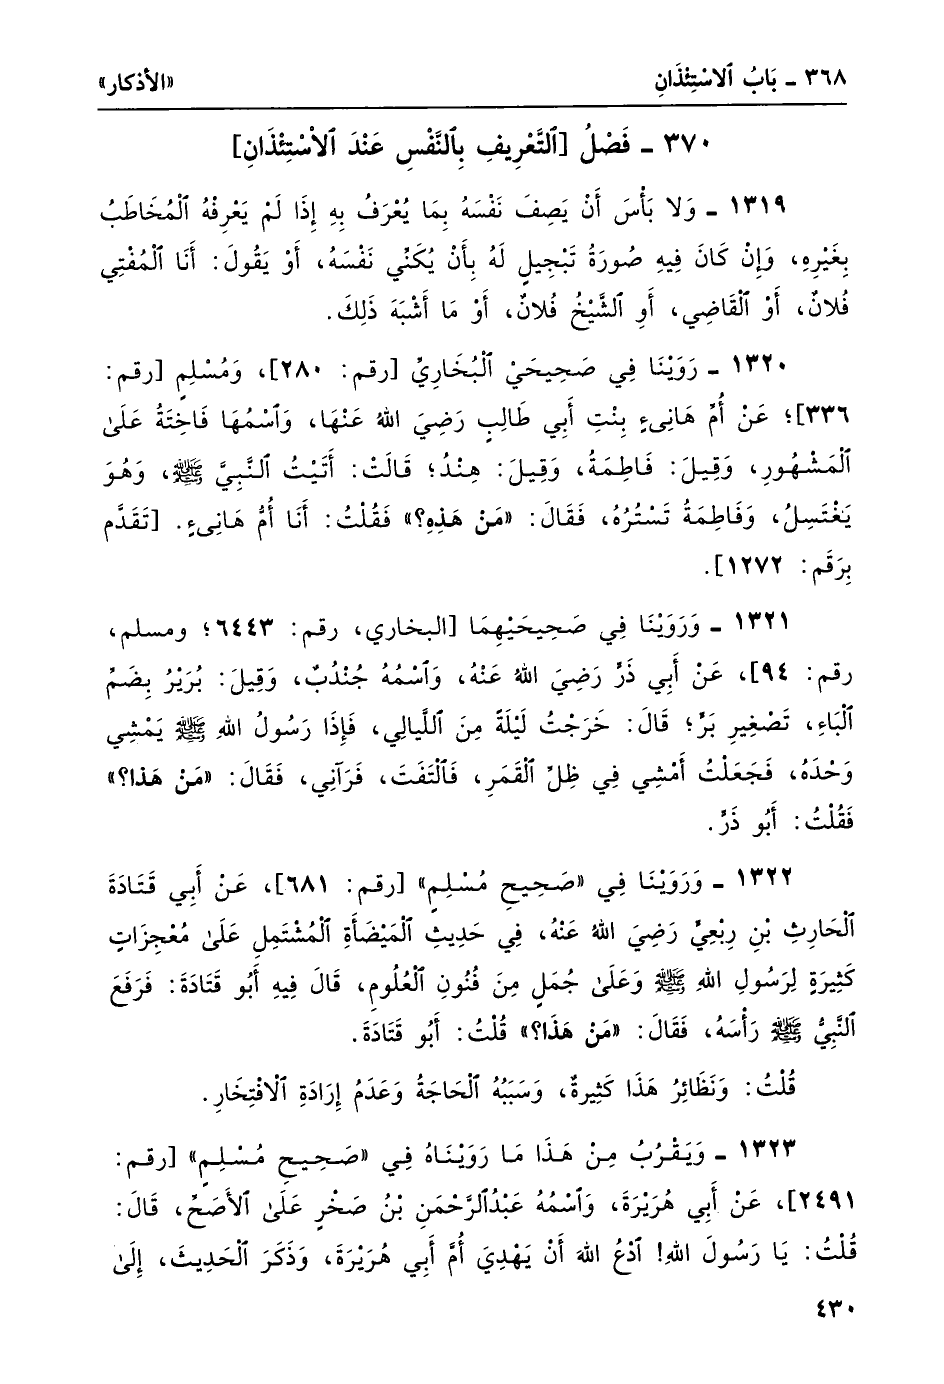 ٣٦٨ ـ بَابُ ٱلاسْتِئْذَانِ «الأذكار»
٣٧٠ ـ فَصْلُ [ٱلتَّعْرِيفِ بِٱلنَّفْسِ عَنْدَ ٱلاْسْتِئْذَانِ]
١٣١٩ ـ وَلا بَأْسَ أَنْ يَصِفَ نَفْسَهُ بِمَا يُعْرَفُ بِهِ إِذَا لَمْ يَعْرِفْهُ ٱلْمُخَاطَبُ
بِغَيْرِهِ، وَإِنْ كَانَ فِيهِ صُورَةُ تَبْجِيلٍ لَهُ بِأَنْ يُكَنِّي نَفْسَهُ، أَوْ يَقُولَ: أَنَا ٱلْمُفْتِي
فُلانٌ، أَوْ ٱلْقَاضِي، أَوِ ٱلشَّيْخُ فُلانٌ، أَوْ مَا أَشْبَهَ ذَلِكَ.
١٣٢٠ ـ رَوَيْنَا فِي صَحِيحَيْ ٱلْبُخَارِيِّ [رقم: ٢٨٠]، وَمُسْلِمٍ [رقم:
٣٣٦]؛ عَنْ أُمِّ هَانِىءٍ بِنْتِ أَبِي طَالِبٍ رَضِيَ اللهُ عَنْهَا، وَٱسْمُهَا فَاخِتَةُ عَلَىٰ
ٱلْمَشْهُورِ، وَقِيلَ: فَاطِمَةُ، وَقِيلَ: هِنْدُ؛ قَالَتْ: أَتَيْتُ ٱلنَّبِيَّ ﷺ، وَهُوَ
يَغْتَسِلُ، وَفَاطِمَةُ تَسْتُرُهُ، فَقَالَ: «مَنْ هَذِهِ؟» فَقُلْتُ: أَنَا أُمُّ هَانِىءٍ. [تَقَدَّم
بِرَقَم: ١٢٧٢].
١٣٢١ ـ وَرَوَيْنَا فِي صَحِيحَيْهِمَا [البخاري، رقم: ٦٤٤٣؛ ومسلم،
رقم: ٩٤]، عَنْ أَبِي ذَرٍّ رَضِيَ اللهُ عَنْهُ، وَٱسْمُهُ جُنْدُبٌ، وَقِيلَ: بُرَيْرُ بِضَمِّ
ٱلْبَاءِ، تَصْغِيرِ بَرٍّ؛ قَالَ: خَرَجْتُ لَيْلَةً مِنَ ٱللَّيالِي، فَإِذَا رَسُولُ اللهِ ﷺ يَمْشِي
وَحْدَهُ، فَجَعَلْتُ أَمْشِي فِي ظِلِّ ٱلْقَمَرِ، فَٱلْتَفَتَ، فَرَآنِي، فَقَالَ: «مَنْ هَذا؟»
فَقُلْتُ: أَبُو ذَرٍّ.
١٣٢٢ ـ وَرَوَيْنَا فِي «صَحِيحِ مُسْلِمٍ» [رقم: ٦٨١]، عَنْ أَبِي قَتَادَةَ
ٱلْحَارِثِ بْنِ رِبْعِيٍّ رَضِيَ اللهُ عَنْهُ، فِي حَدِيثِ ٱلْمَيْضَأَةِ ٱلْمُشْتَمِلِ عَلَىٰ مُعْجِزَاتٍ
كَثِيرَةٍ لِرَسُولِ اللهِ ﷺ وَعَلَىٰ جُمَلٍ مِنَ فُنُونِ ٱلْعُلُومِ، قَالَ فِيهِ أَبُو قَتَادَةَ: فَرَفَعَ
ٱلنَّبِيُّ ﷺ رَأْسَهُ، فَقَالَ: «مَنْ هَذَا؟» قُلْتُ: أَبُو قَتَادَةَ.
قُلْتُ: وَنَظَائِرُ هَذَا كَثِيرةٌ، وَسَبَبُهُ ٱلْحَاجَةُ وَعَدَمُ إِرَادَةِ ٱلْافْتِخَارِ.
١٣٢٣ ـ وَيَقْرُبُ مِنْ هَذَا مَا رَوَيْنَاهُ فِي «صَحِيحِ مُسْلِمٍ» [رقم:
٢٤٩١]، عَنْ أَبِي هُرَيْرَةَ، وَٱسْمُهُ عَبْدُٱلرَّحْمَنِ بْنُ صَخْرٍ عَلَىٰ ٱلأَصَحِّ، قَالَ:
قُلْتُ: يَا رَسُولَ اللهِ! ٱدْعُ اللهَ أَنْ يَهْدِيَ أُمَّ أَبِي هُرَيْرَةَ، وَذَكَرَ ٱلْحَدِيثَ، إِلَىٰ
٤٣٠